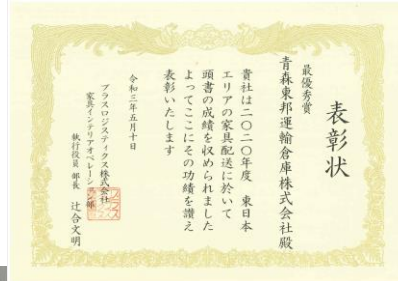 表彰状
最優秀賞
青森東邦運輸倉庫株式会社殿
貴社は二〇二〇年度 東日本
エリアの家具配送に於いて
頭書の成績を収められました
よってここにその功績を讃え
表彰いたします
令和三年五月十日
プラスロジスティクス株式会社
家具インテリアオペレーション部
執行役員 部長 辻合文明